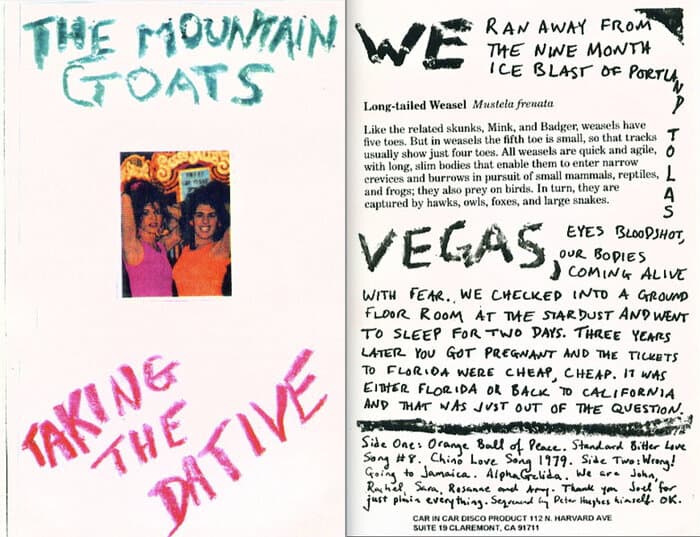 THE MOUNTAIN
GOATS
TAKING
THE
DATIVE
WE RAN AWAY FROM
THE NINE MONTH
ICE BLAST OF PORTLAND
TO LAS
Long-tailed Weasel Mustela frenata
Like the related skunks, Mink, and Badger, weasels have
five toes. But in weasels the fifth toe is small, so that tracks
usually show just four toes. All weasels are quick and agile,
with long, slim bodies that enable them to enter narrow
crevices and burrows in pursuit of small mammals, reptiles,
and frogs; they also prey on birds. In turn, they are
captured by hawks, owls, foxes, and large snakes.
VEGAS, EYES BLOODSHOT,
OUR BODIES
COMING ALIVE
WITH FEAR. WE CHECKED INTO A GROUND
FLOOR ROOM AT THE STARDUST AND WENT
TO SLEEP FOR TWO DAYS. THREE YEARS
LATER YOU GOT PREGNANT AND THE TICKETS
TO FLORIDA WERE CHEAP, CHEAP. IT WAS
EITHER FLORIDA OR BACK TO CALIFORNIA
AND THAT WAS JUST OUT OF THE QUESTION.
Side One: Orange Ball of Peace. Standard Bitter Love
Song #8. Chino Love Song 1979. Side Two: Wrong!
Going to Jamaica. Alpha Gelida. We are John,
Rachel, Sara, Rosanne and Amy. Thank you Joel for
just plain everything. by Peter Hughes himself. OK.
CAR IN CAR DISCO PRODUCT 112 N. HARVARD AVE
SUITE 19 CLAREMONT, CA 91711